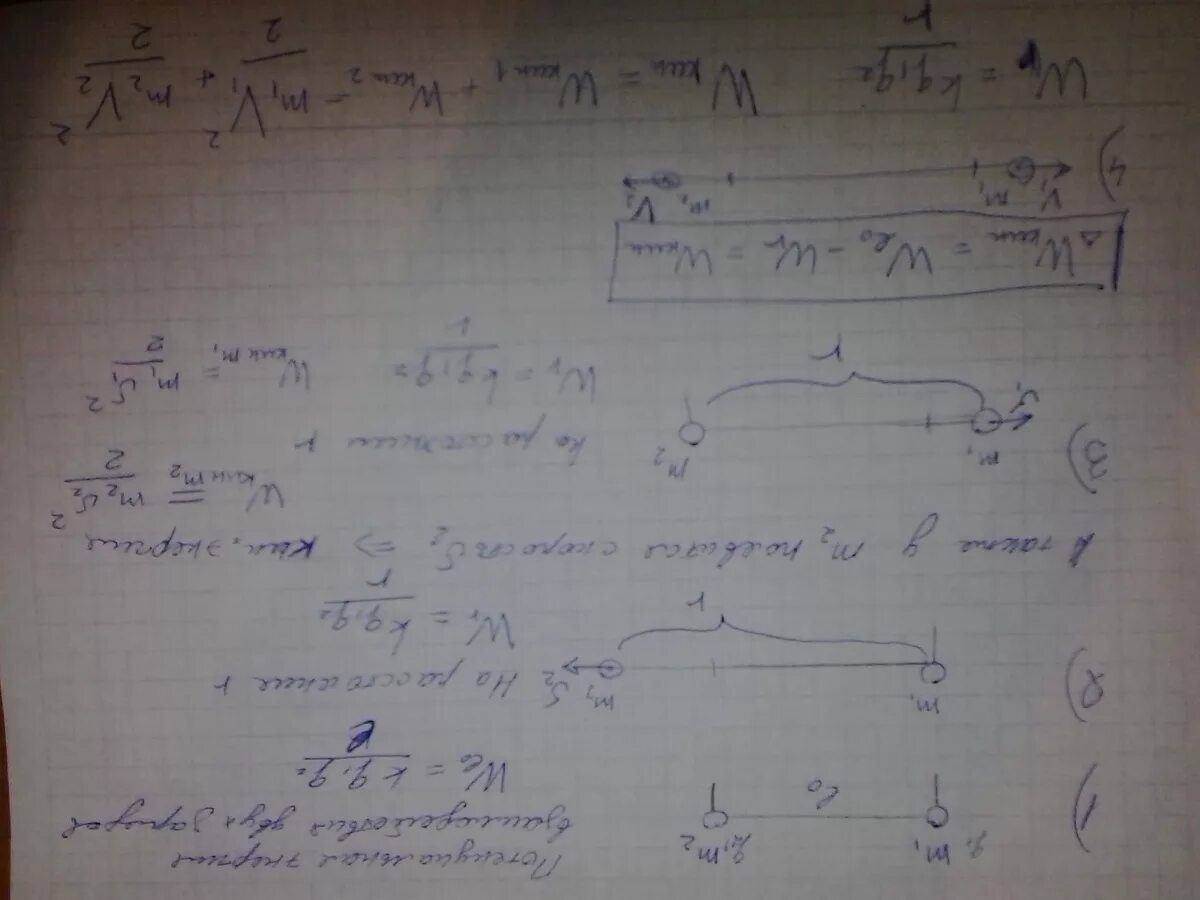 1)
q₁ m₁
q₂, m₂
l₀
Потенциальная энергия
взаимодействия двух зарядов
W_l₀ = k q₁ q₂ / l
2)
m₁
m₂
υ₂
r
На расстоянии r
W_r = k q₁ q₂ / r
а также у m₂ появилась скорость υ₂ ⇒ кин. энергия
W кин m₂ = m₂ υ₂² / 2
3)
m₁
υ₁
m₂
r
на расстоянии r
W_r = k q₁ q₂ / r
W кин m₁ = m₁ υ₁² / 2
ΔW кин = W_l₀ − W_r = W кин
4)
V₁
m₁
m₂
V₂
W_r = k q₁ q₂ / r
W кин = W кин 1 + W кин 2 = m₁ V₁² / 2 + m₂ V₂² / 2